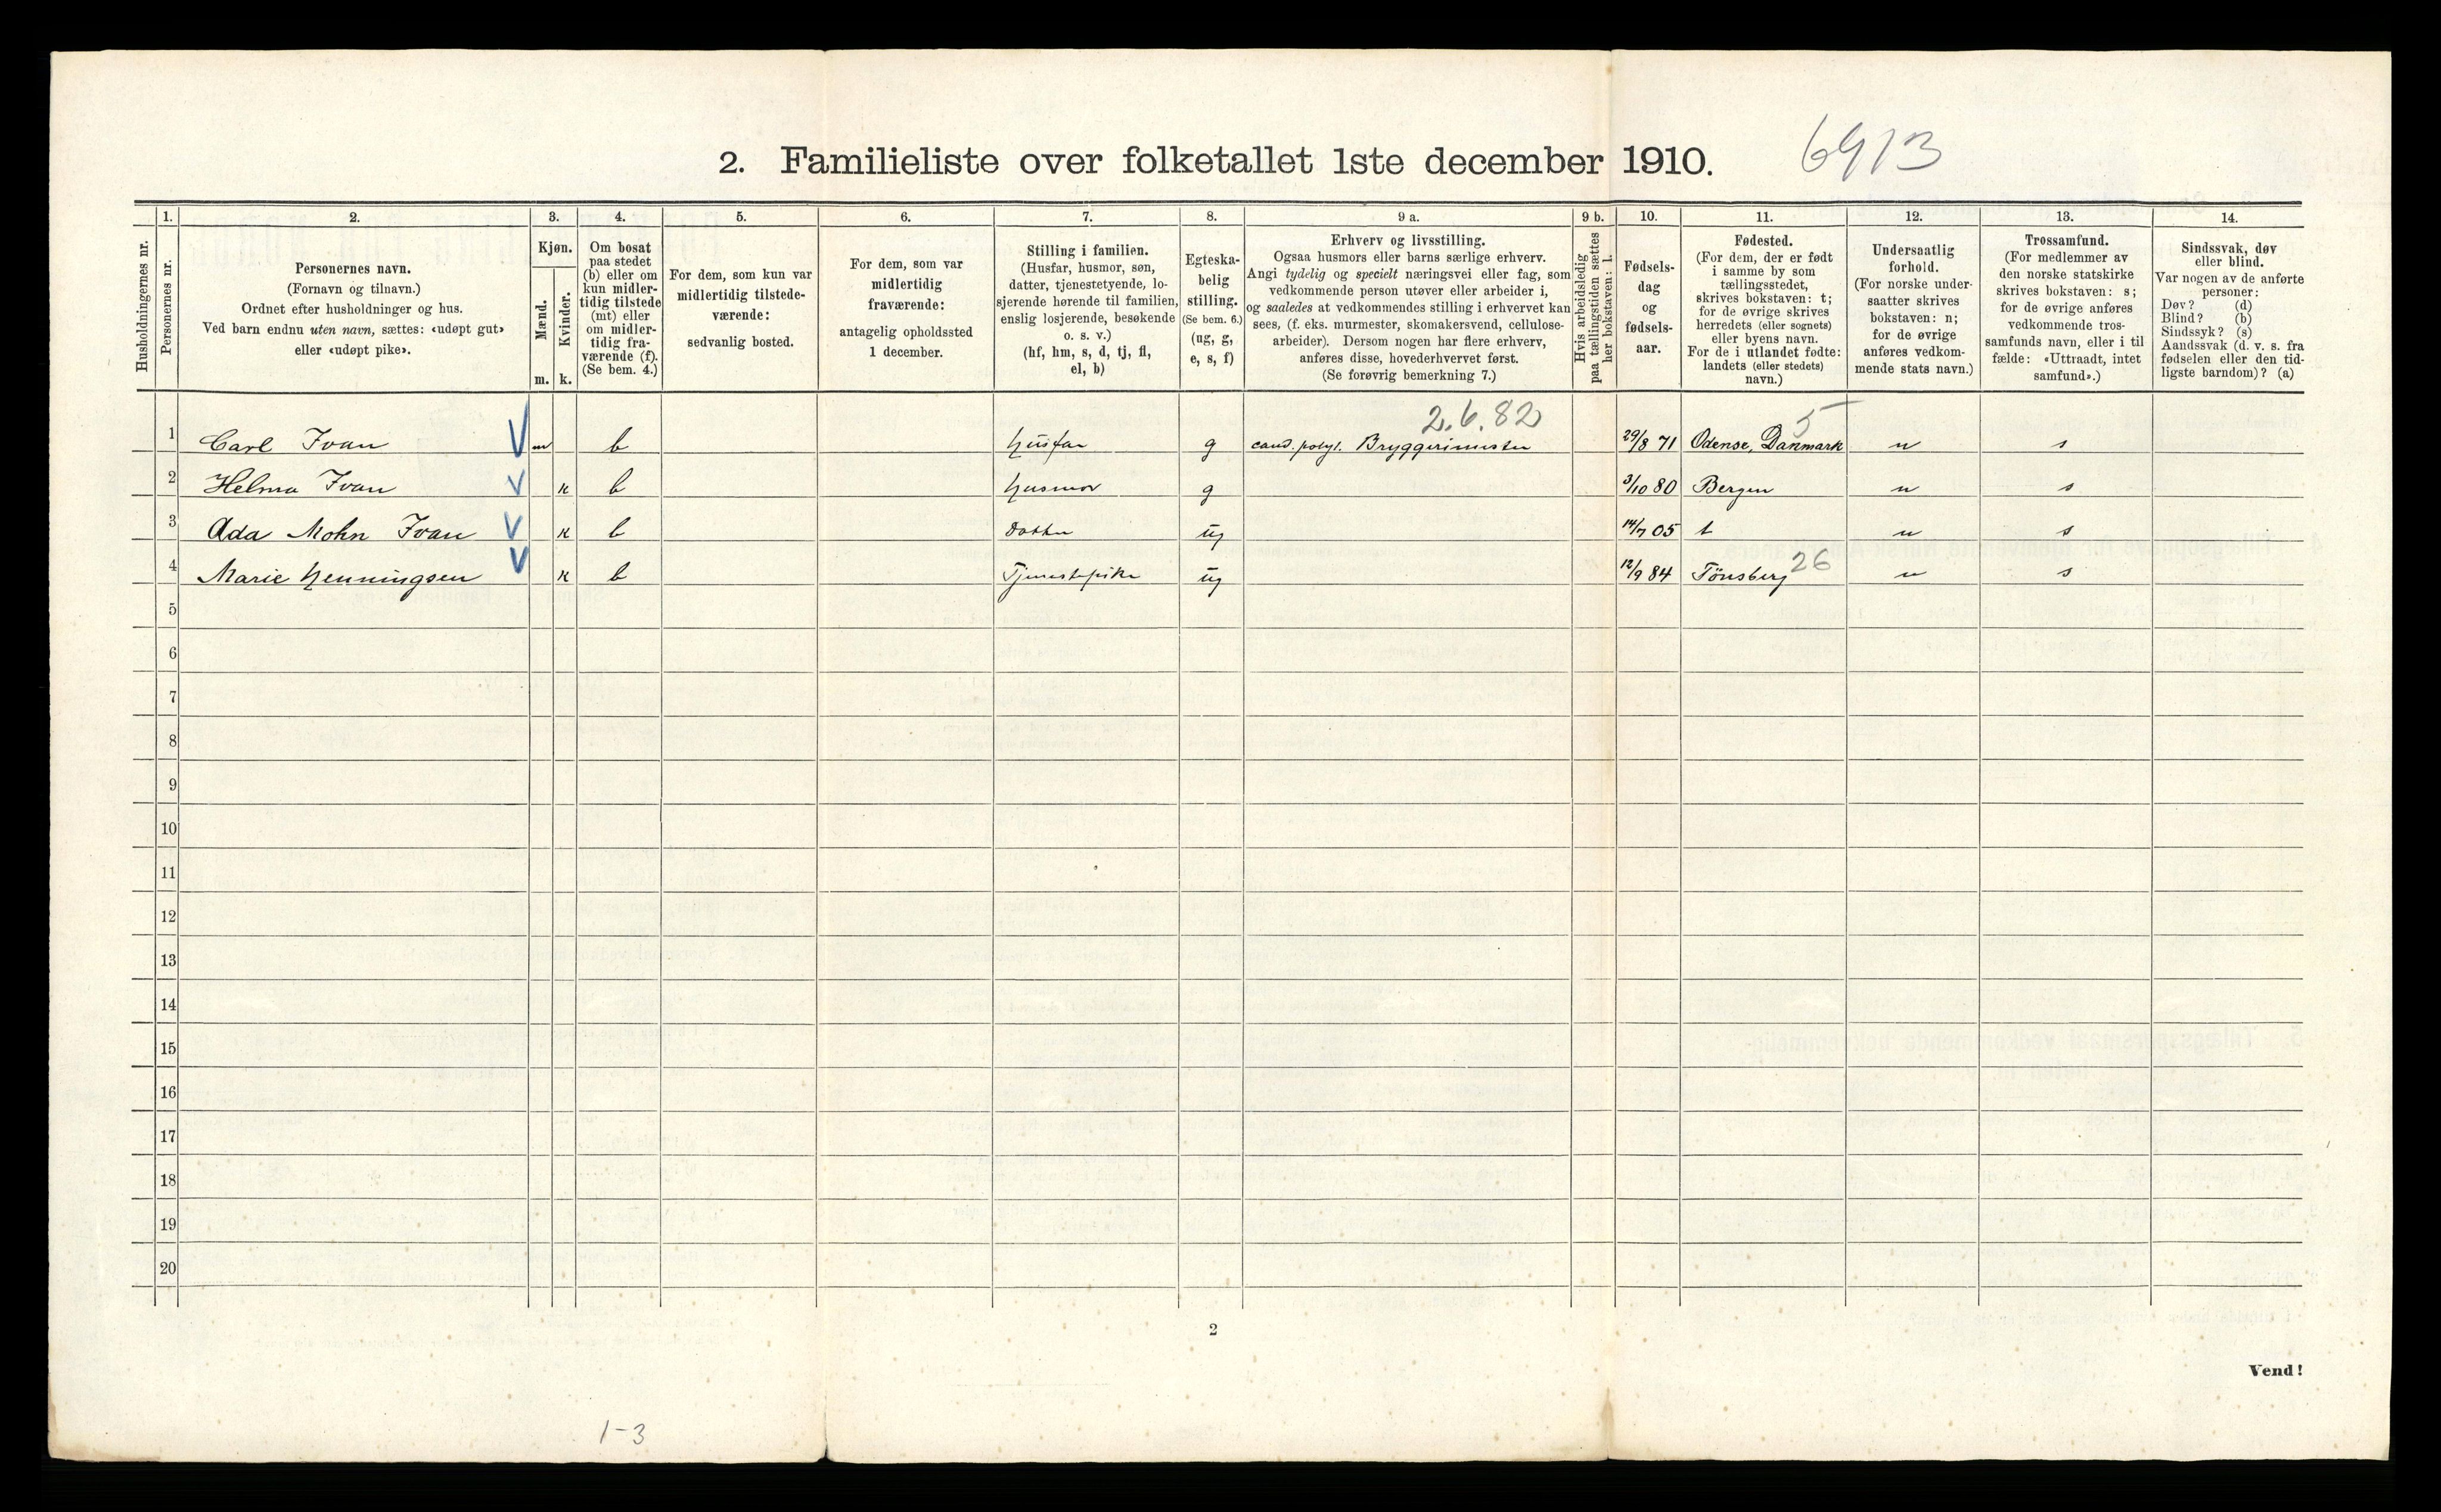 2. Familieliste over folketallet 1ste december 1910. 6913
1. 2. 3. 4. 5. 6. 7. 8. 9 a. 9 b. 10. 11. 12. 13. 14.
Husholdningernes nr.
Personernes nr.
Personernes navn.
(Fornavn og tilnavn.)
Ordnet efter husholdninger og hus.
Ved barn endnu uten navn, sættes: «udøpt gut»
eller «udøpt pike».
Kjøn.
Mænd.
m.
Kvinder.
k.
Om bosat
paa stedet
(b) eller om
kun midler-
tidig tilstede
(mt) eller
om midler-
tidig fra-
værende (f).
(Se bem. 4.)
For dem, som kun var
midlertidig tilstede-
værende:
sedvanlig bosted.
For dem, som var
midlertidig
fraværende:
antagelig opholdssted
1 december.
Stilling i familien.
(Husfar, husmor, søn,
datter, tjenestetyende, lo-
sjerende hørende til familien,
enslig losjerende, besøkende
o. s. v.)
(hf, hm, s, d, tj, fl,
el, b)
Egteska-
belig
stilling.
(Se bem. 6.)
(ug, g,
e, s, f)
Erhverv og livsstilling.
Ogsaa husmors eller barns særlige erhverv.
Angi tydelig og specielt næringsvei eller fag, som
vedkommende person utøver eller arbeider i,
og saaledes at vedkommendes stilling i erhvervet kan
sees, (f. eks. murmester, skomakersvend, cellulose-
arbeider). Dersom nogen har flere erhverv,
anføres disse, hovederhvervet først.
(Se forøvrig bemerkning 7.)
Hvis arbeidsledig
paa tællingstiden sættes
her bokstaven: l.
Fødsels-
dag
og
fødsels-
aar.
Fødested.
(For dem, der er født
i samme by som
tællingsstedet,
skrives bokstaven: t;
for de øvrige skrives
herredets (eller sognets)
eller byens navn.
For de i utlandet fødte:
landets (eller stedets)
navn.)
Undersaatlig
forhold.
(For norske under-
saatter skrives
bokstaven: n;
for de øvrige
anføres vedkom-
mende stats navn.)
Trossamfund.
(For medlemmer av
den norske statskirke
skrives bokstaven: s;
for de øvrige anføres
vedkommende tros-
samfunds navn, eller i til
fælde: «Uttraadt, intet
samfund».)
Sindssvak, døv
eller blind.
Var nogen av de anførte
personer:
Døv? (d)
Blind? (b)
Sindssyk? (s)
Aandssvak (d. v. s. fra
fødselen eller den tid-
ligste barndom)? (a)
2.6.82 5
1 Carl Ivan m b Husfar g cand. polyt. Bryggerimester 29/8 71 Odense, Danmark n s
2 Helma Ivan k b Husmor g 3/10 80 Bergen n s
3 Ada Mohn Ivan k b Datter ug 14/7 05 t n s
4 Marie Henningsen k b Tjenestepike ug 12/9 84 Tönsberg 26 n s
5
6
7
8
9
10
11
12
13
14
15
16
17
18
19
20
2
Vend!
1-3